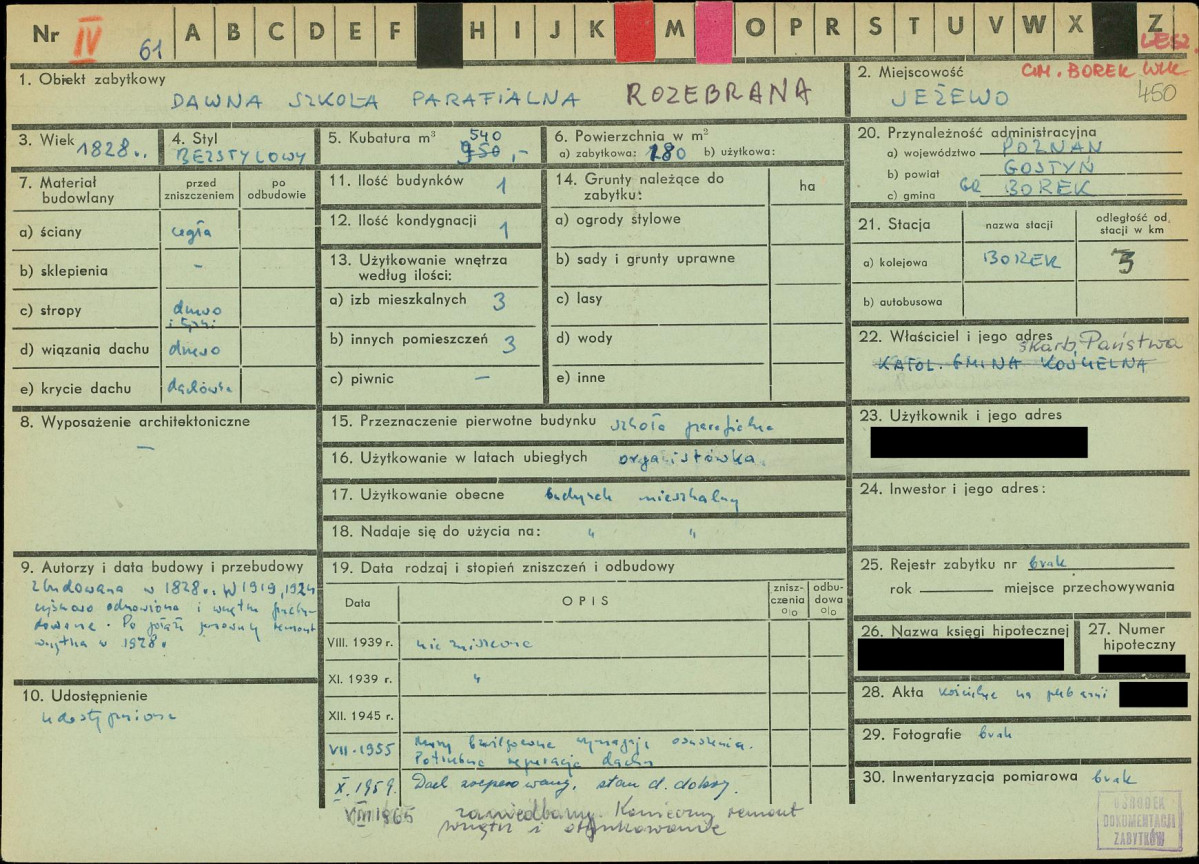 Nr IV 61 A B C D E F H I J K M O P R S T U V W X Z
LESZ.
1. Obiekt zabytkowy
DAWNA SZKOŁA PARAFIALNA ROZEBRANA
2. Miejscowość GM. BOREK WLK
JEŻEWO 450
3. Wiek 1828 r.
4. Styl
BEZSTYLOWY
5. Kubatura m³ 540
950,-
6. Powierzchnia w m²
a) zabytkowa: 180 b) użytkowa:
20. Przynależność administracyjna
a) województwo POZNAŃ
b) powiat GOSTYŃ
c) gmina GR BOREK
7. Materiał budowlany
przed zniszczeniem
po odbudowie
a) ściany cegła
b) sklepienia -
c) stropy drewo
d) wiązania dachu drewo
e) krycie dachu dachówka
11. Ilość budynków 1
12. Ilość kondygnacji 1
13. Użytkowanie wnętrza
według ilości:
a) izb mieszkalnych 3
b) innych pomieszczeń 3
c) piwnic —
14. Grunty należące do
zabytku:
ha
a) ogrody stylowe
b) sady i grunty uprawne
c) lasy
d) wody
e) inne
21. Stacja
nazwa stacji
odległość od
stacji w km
a) kolejowa BOREK
b) autobusowa
22. Właściciel i jego adres
Skarb Państwa
KATOL. GMINA KOŚCIELNA
8. Wyposażenie architektoniczne
—
15. Przeznaczenie pierwotne budynku szkoła parafialna
16. Użytkowanie w latach ubiegłych organistówka.
17. Użytkowanie obecne budynek mieszkalny
18. Nadaje się do użycia na: " "
23. Użytkownik i jego adres
24. Inwestor i jego adres:
9. Autorzy i data budowy i przebudowy
Zbudowana w 1828 r. W 1919, 1924
odnowiona i wnętrze
remont
wnętrza w 1928 r.
10. Udostępnienie
udostępniona
19. Data rodzaj i stopień zniszczeń i odbudowy
Data
OPIS
znisz-
czenia
o/o
odbu-
dowa
o/o
VIII. 1939 r. nie zniszczone
XI. 1939 r. "
XII. 1945 r.
VII-1955 Mury zawilgocone wymagają osuszenia.
Potrzebna reperacja dachu
X. 1959. Dach zreperowany, stan d. dobry.
VIII 1965 zaniedbany. Konieczny remont
wnętrz i otynkowanie
25. Rejestr zabytku nr brak
rok miejsce przechowywania
26. Nazwa księgi hipotecznej
27. Numer
hipoteczny
28. Akta kościelne na plebanii
29. Fotografie brak
30. Inwentaryzacja pomiarowa brak
OŚRODEK
DOKUMENTACJI
ZABYTKÓW